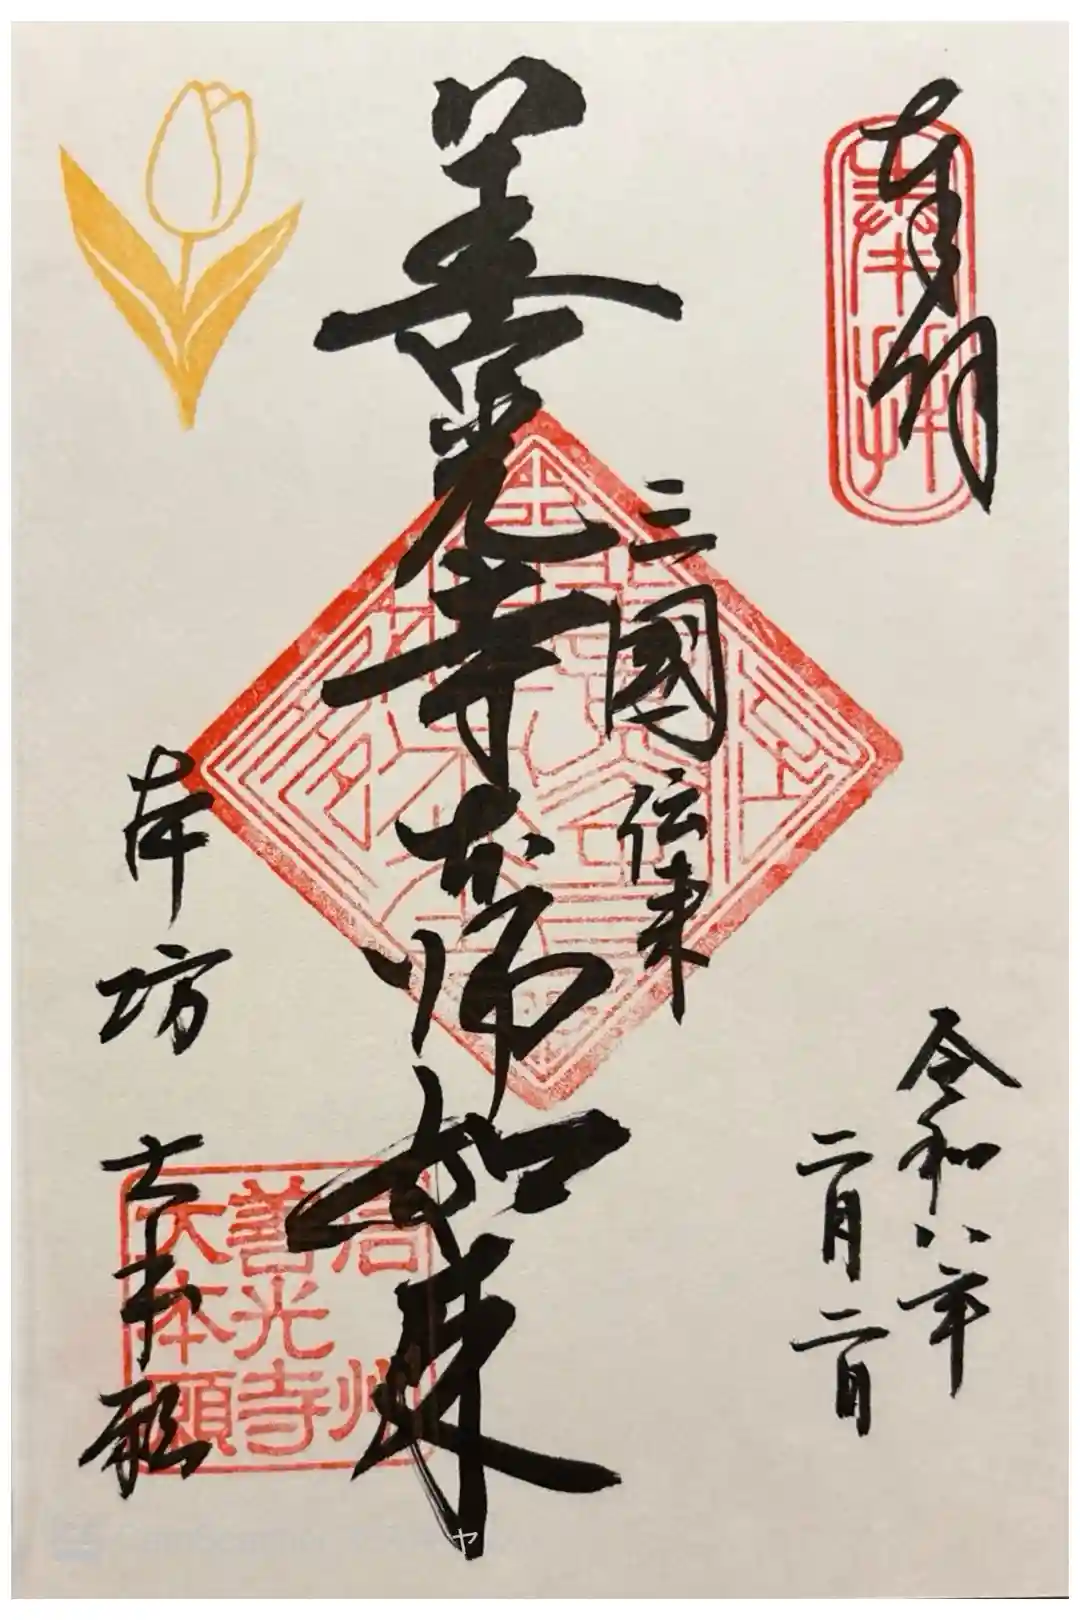 奉拝
奉拝
三國伝来
善光寺本師如来
令和八年
二月二日
本坊 大本願
信州
善光寺
大本願